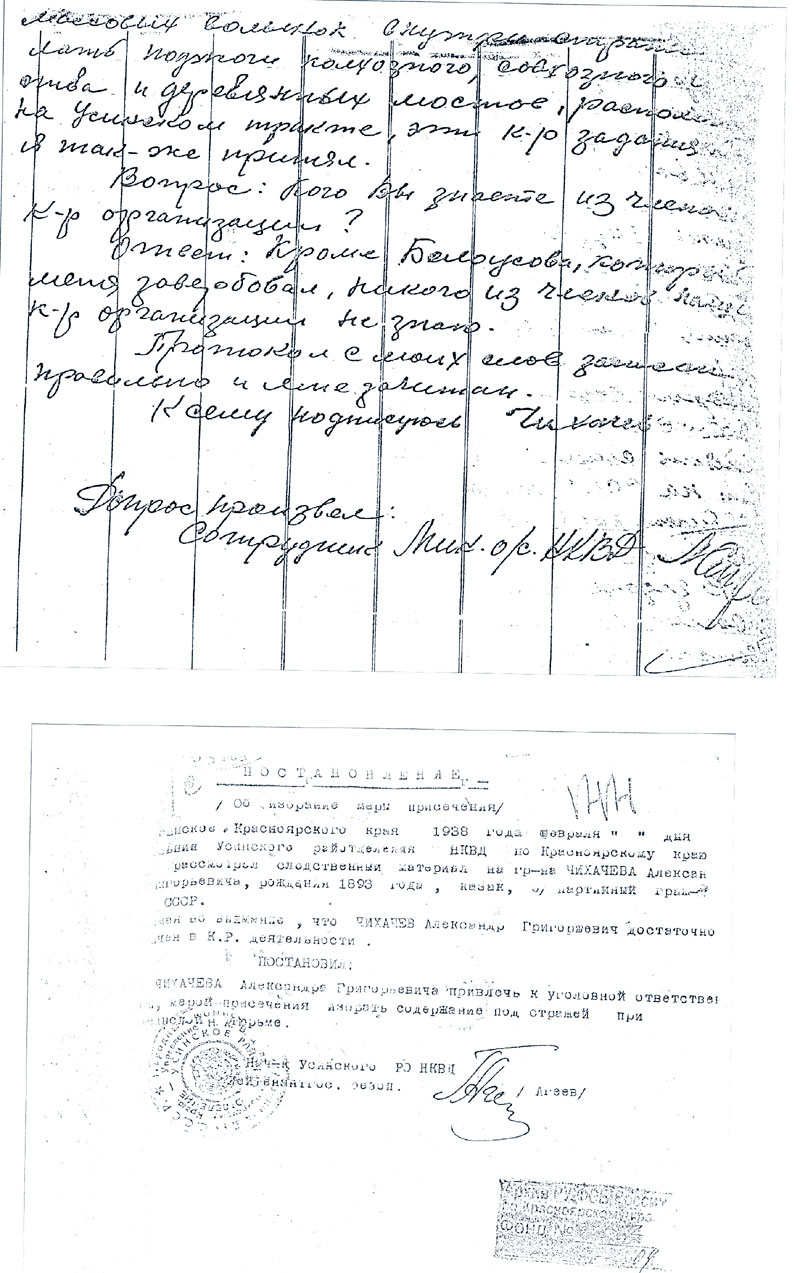 массовых волынок внутри
лать поджоги колхозного, совхозного и
ства и деревянных мостов, распол
на Усинском тракте, эти к-р задания
я так-же принял.
Вопрос: Кого Вы знаете из члено
к-р организации?
Ответ: Кроме Белоусова, который
меня завербовал, никого из членов наше
к-р организации не знаю.
Протокол с моих слов записан
правильно и мне зачитан.
К сему подписуюсь Чихачев
Допрос произвел:
Сотрудник Мин. о/с. НКВД
ПОСТАНОВЛЕНИЕ
/ Об избрание меры присечения/
инское, Красноярского края 1938 года февраля " " дня
Усинского райотделения НКВД по Красноярскому краю
рассмотрел следственный материал на гр-на ЧИХАЧЕВА Алексан
игорьевича, рождения 1893 года, казак, б/партийный граж
СССР.
, что ЧИХАЧЕВ Александр Григоржевич достаточно
чен в К.Р. деятельности.
ПОСТАНОВИЛ:
ЧИХАЧЕВА Александра Григорьевича привлечь к уголовной ответствен
, мерой присечения избрать содержание под стражей при
тюрьме.
Нач-к Усинского РО НКВД
Лейтенант гос. безоп. / Агеев/
УСИНСКОЕ
РУ ФСБ России
по Красноярскому кра
ФОНД №